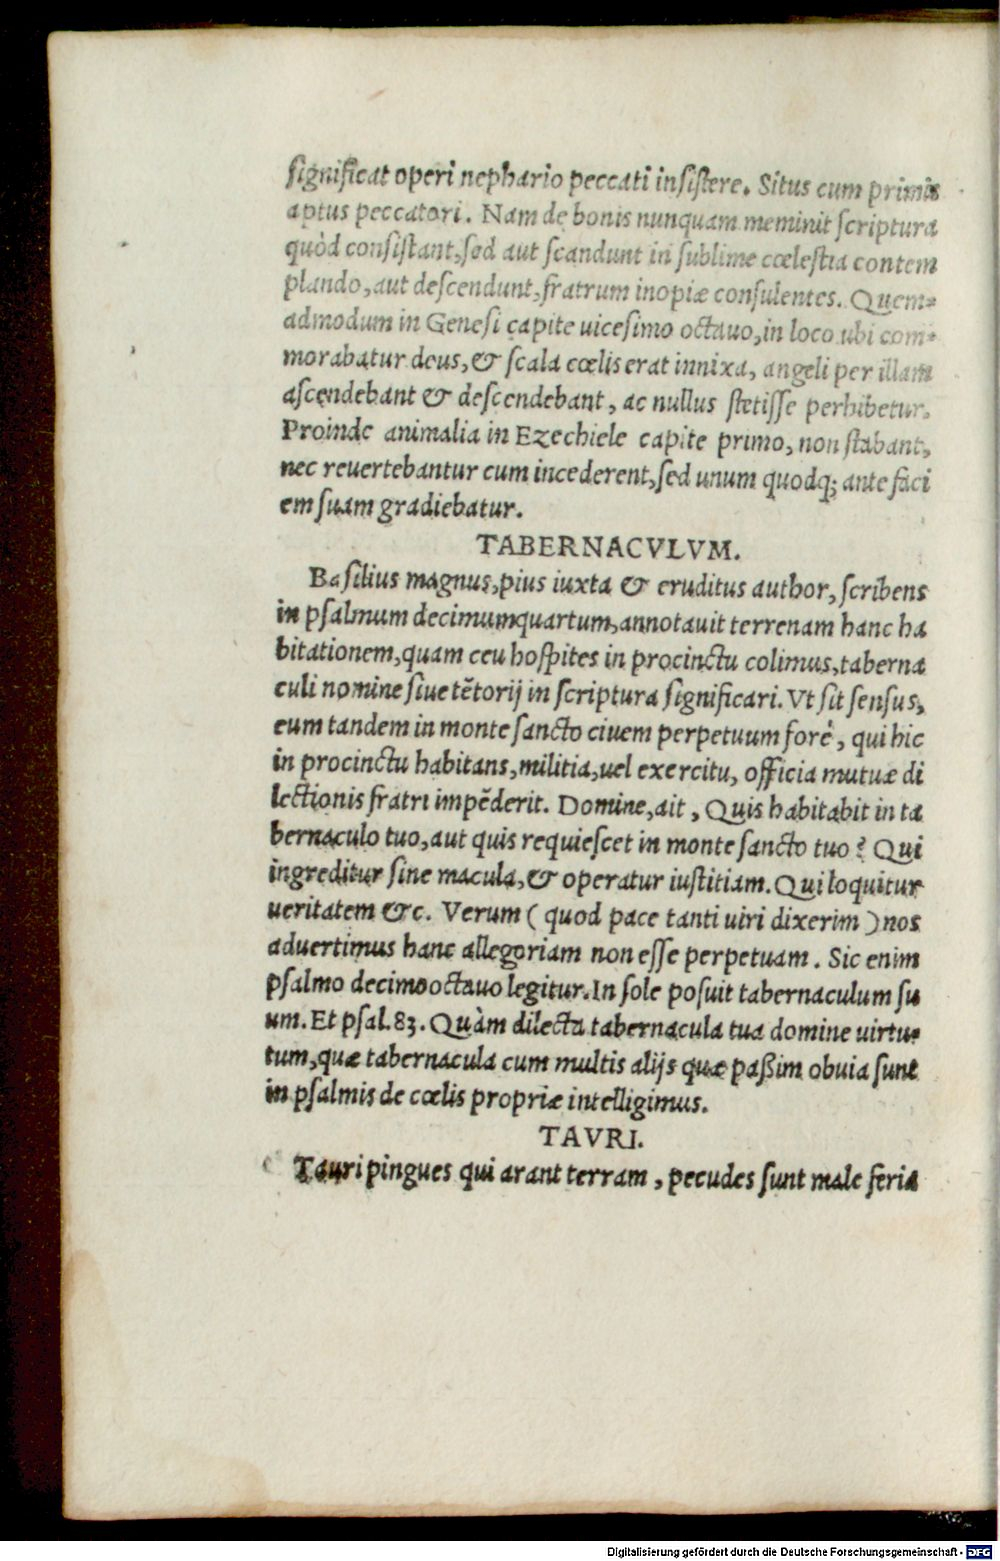 significat operi nephario peccati insistere. Situs cum primis
aptus peccatori. Nam de bonis nunquam meminit scriptura
quòd consistant, sed aut scandunt in sublime cœlestia contem
plando, aut descendunt, fratrum inopiæ consulentes. Quem=
admodum in Genesi capite uicesimo octauo, in loco ubi com=
morabatur deus, & scala cœlis erat innixa, angeli per illam
ascendebant & descendebant, ac nullus stetisse perhibetur.
Proinde animalia in Ezechiele capite primo, non stabant,
nec reuertebantur cum incederent, sed unum quodq; ante faci
em suam gradiebatur.
TABERNACVLVM.
Basilius magnus, pius iuxta & eruditus author, scribens
in psalmum decimumquartum, annotauit terrenam hanc ha
bitationem, quam ceu hospites in procinctu colimus, taberna
culi nomine siue tẽtorij in scriptura significari. Vt sit sensus,
eum tandem in monte sancto ciuem perpetuum forè, qui hic
in procinctu habitans, militia, uel exercitu, officia mutuæ di
lectionis fratri impẽderit. Domine, ait, Quis habitabit in ta
bernaculo tuo, aut quis requiescet in monte sancto tuo? Qui
ingreditur sine macula, & operatur iustitiam. Qui loquitur
ueritatem &c. Verum (quod pace tanti uiri dixerim) nos
aduertimus hanc allegoriam non esse perpetuam. Sic enim
psalmo decimooctauo legitur. In sole posuit tabernaculum su
um. Et psal. 83. Quàm dilecta tabernacula tua domine uirtu=
tum, quæ tabernacula cum multis alijs quæ paßim obuia sunt
in psalmis de cœlis propriæ intelligimus.
TAVRI.
Tauri pingues qui arant terram, pecudes sunt male feria
Digitalisierung gefördert durch die Deutsche Forschungsgemeinschaft - DFG